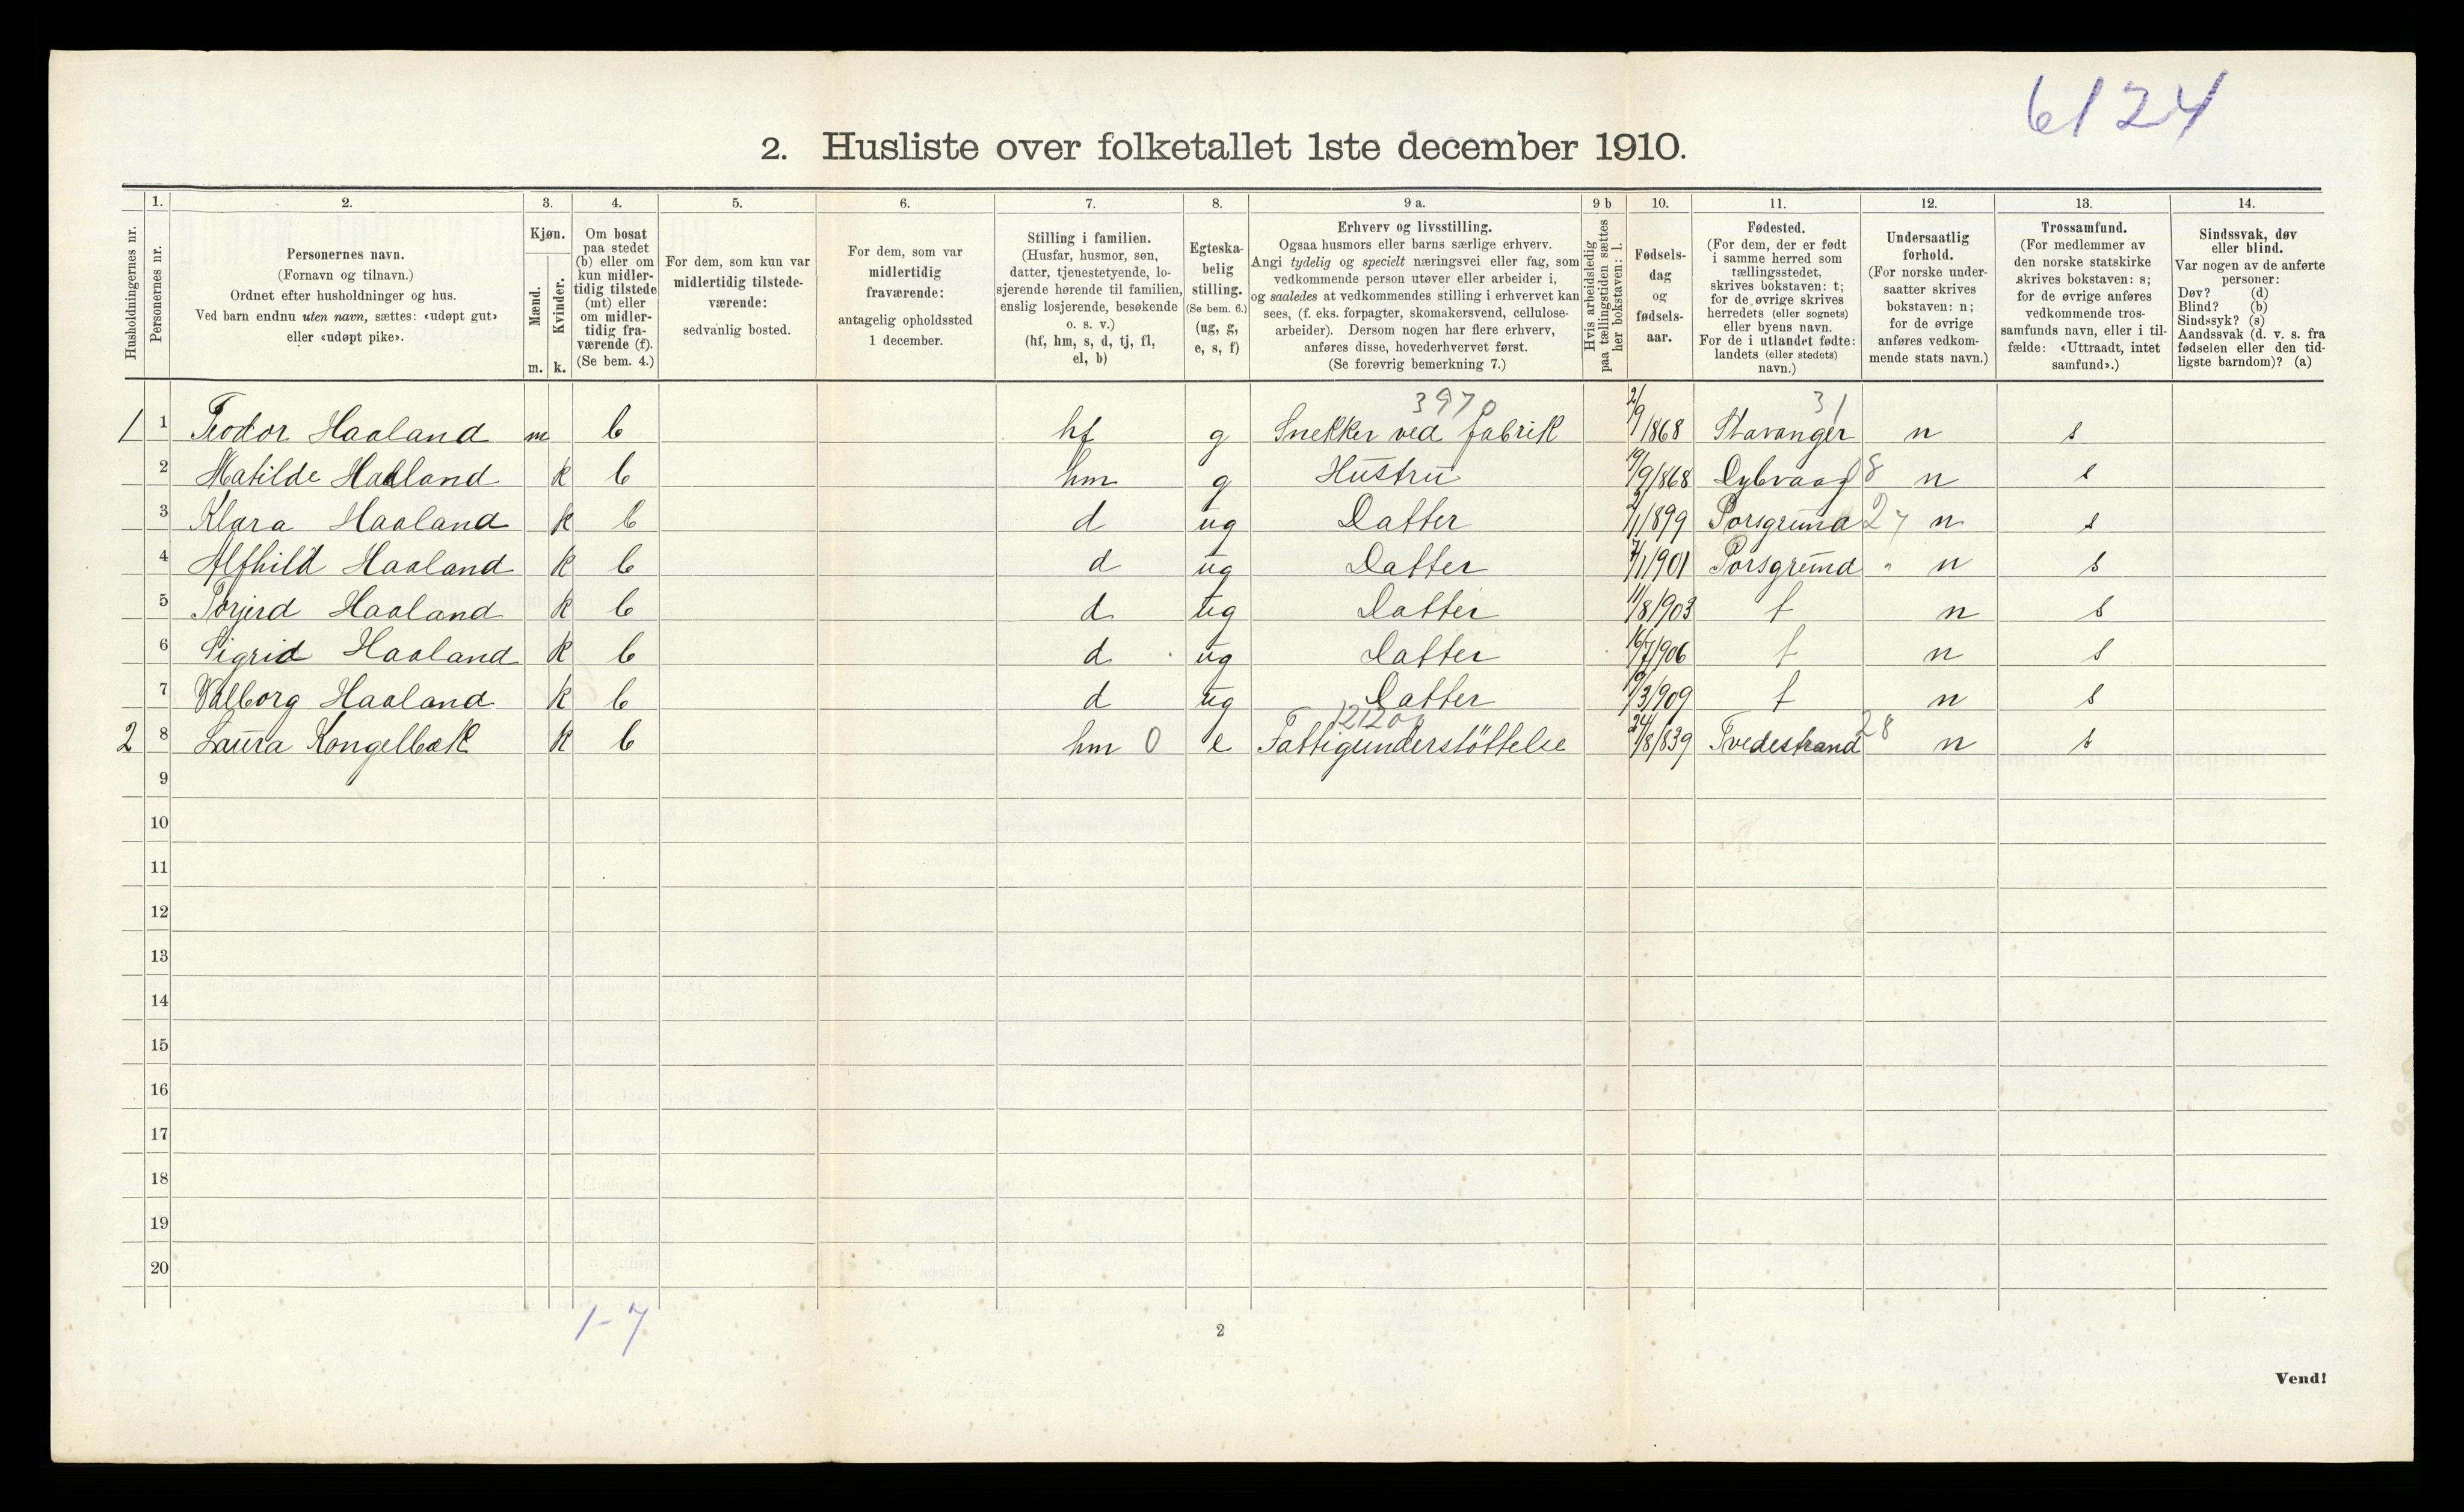 6124
2. Husliste over folketallet 1ste december 1910.
1. 2. 3. 4. 5. 6. 7. 8. 9 a. 9 b 10. 11. 12. 13. 14.
Husholdningernes nr.
Personernes nr.
Personernes navn.
(Fornavn og tilnavn.)
Ordnet efter husholdninger og hus.
Ved barn endnu uten navn, sættes: «udøpt gut»
eller «udøpt pike».
Kjøn.
Mænd.
Kvinder.
m. k.
Om bosat
paa stedet
(b) eller om
kun midler-
tidig tilstede
(mt) eller
om midler-
tidig fra-
værende (f).
(Se bem. 4.)
For dem, som kun var
midlertidig tilstede-
værende:
sedvanlig bosted.
For dem, som var
midlertidig
fraværende:
antagelig opholdssted
1 december.
Stilling i familien.
(Husfar, husmor, søn,
datter, tjenestetyende, lo-
sjerende hørende til familien,
enslig losjerende, besøkende
o. s. v.)
(hf, hm, s, d, tj, fl,
el, b)
Egteska-
belig
stilling.
(Se bem. 6.)
(ug, g,
e, s, f)
Erhverv og livsstilling.
Ogsaa husmors eller barns særlige erhverv.
Angi tydelig og specielt næringsvei eller fag, som
vedkommende person utøver eller arbeider i,
og saaledes at vedkommendes stilling i erhvervet kan
sees, (f. eks. forpagter, skomakersvend, cellulose-
arbeider). Dersom nogen har flere erhverv,
anføres disse, hovederhvervet først.
(Se forøvrig bemerkning 7.)
Hvis arbeidsledig
paa tællingstiden sættes
her bokstaven: l.
Fødsels-
dag
og
fødsels-
aar.
Fødested.
(For dem, der er født
i samme herred som
tællingsstedet,
skrives bokstaven: t;
for de øvrige skrives
herredets (eller sognets)
eller byens navn.
For de i utlandet fødte:
landets (eller stedets)
navn.)
Undersaatlig
forhold.
(For norske under-
saatter skrives
bokstaven: n;
for de øvrige
anføres vedkom-
mende stats navn.)
Trossamfund.
(For medlemmer av
den norske statskirke
skrives bokstaven: s;
for de øvrige anføres
vedkommende tros-
samfunds navn, eller i til-
fælde: «Uttraadt, intet
samfund».)
Sindssvak, døv
eller blind.
Var nogen av de anførte
personer:
Døv? (d)
Blind? (b)
Sindssyk? (s)
Aandssvak (d. v. s. fra
fødselen eller den tid-
ligste barndom)? (a)
3970 31
1 1 Teodor Haaland m b hf g Snekker ved fabrik 2/9 1868 Stavanger n s
2 Matilde Haaland k b hm g Hustru 19/9/868 Dybvaag 8 n s
3 Klara Haaland k b d ug Datter /1/1899 Porsgrund 27 n s
4 Alfhild Haaland k b d ug Datter 7/1/1901 Porsgrund " n s
5 Torjerd Haaland k b d ug Datter 11/8/903 t n s
6 Sigrid Haaland k b d ug Datter 16/7/906 t n s
7 Valborg Haaland k b d ug Datter /3/909 t n s
12120
2 8 Laura Kongelbæk k b hm 0 e Fattigunderstöttelse 24/8/839 Tvedestrand 28 n s
9
10
11
12
13
14
15
16
17
18
19
20
1-7
2
Vend!